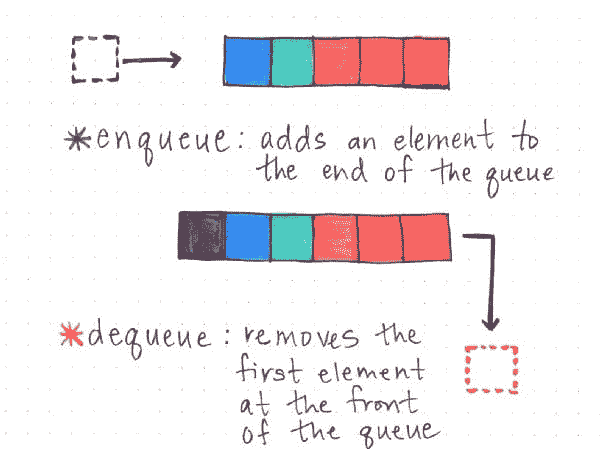 *enqueue: adds an element to
the end of the queue
*dequeue: removes the
first element
at the front
of the queue